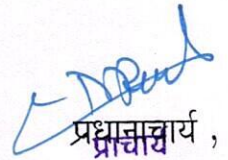 प्रधानाचार्य ,
प्राचार्य